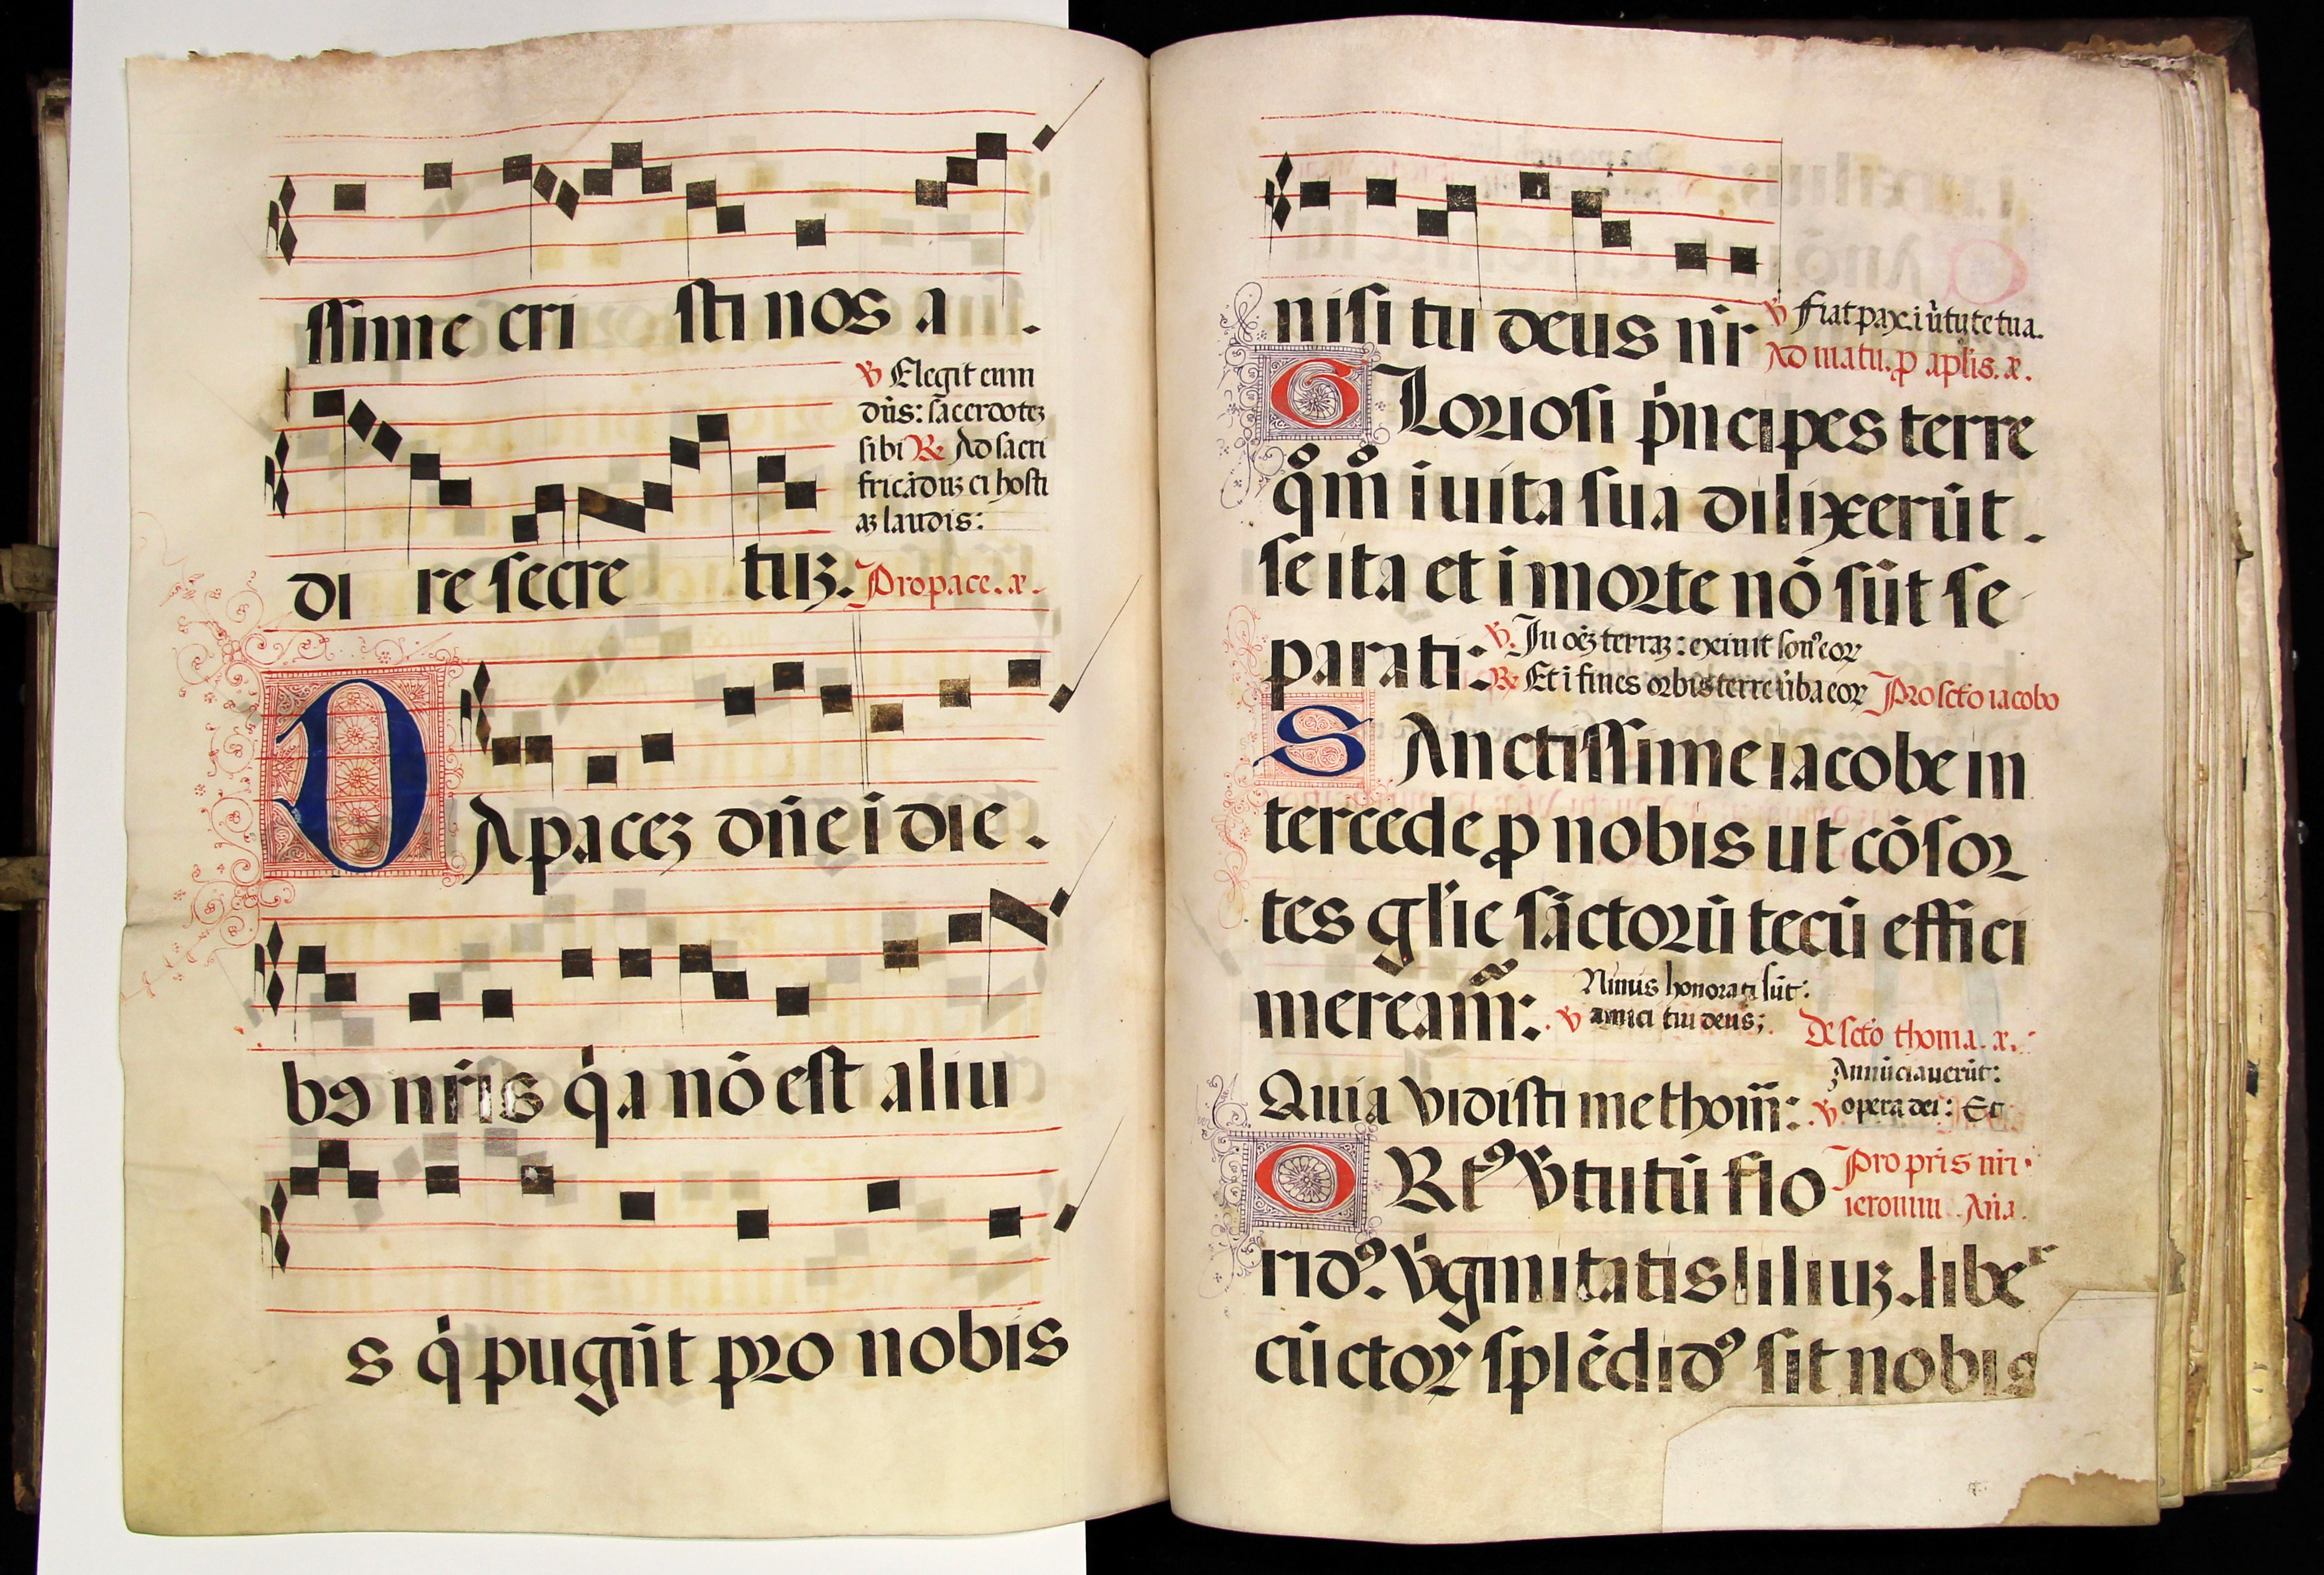 ssime cri sti nos a .
℣ Elegit eum
dn̄s: sacerdotē
sibi ℟ Ad sacri
ficāduꝫ ei hosti
aꝫ laudis:
di re secre tuꝫ. Pro pace. a.
DA paceꝫ dn̄e i die .
bꝰ nr̄is q̇a nō est aliu
s q̇ pugn̄t pro nobis
nisi tu deus nr̄ ℣ Fiat pax i v̄tute tua.
Ad matu. ꝓ aplis. a.
GLoriosi pṅcipes terre
qͦmͦ i uita sua dilixerūt .
se ita et i morte nō sūt se
parati: ℣. In oēꝫ terraꝫ: exiuit sonꝰ eoꝝ
℟ Et i fines orbis terre v̄ba eoꝝ Pro sc̄to iacobo
SAnctissime iacobe in
tercede ꝓ nobis ut cōsor
tes gl̄ie sāctorū tecū effici
meream̄r: Nimis honorati sūt:
℣ amici tui deus; De sc̄to thoma. a.
Quia vidisti me thom̄: Annūciauerūt:
℣ opera dei: Et
ORtꝰ v̄tutū flo Pro pr̄is nr̄i
ieronimi Aña.
ridꝰ. v̄ginitatis liliuꝫ. liber
cūctoꝝ splēdidꝰ sit nobis